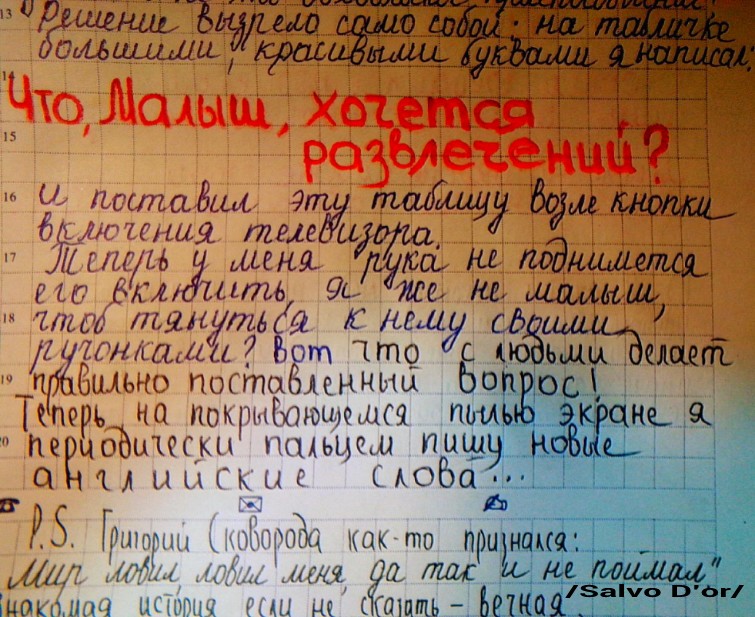 13
Решение вызрело само собой: на табличке
большими, красивыми буквами я написал.
14
Что, Малыш, хочется
15
развлечений?
16 И поставил эту таблицу возле кнопки
включения телевизора.
17 Теперь у меня рука не поднимется
его включить, я же не малыш,
18 чтоб тянуться к нему своими
ручонками? Вот что с людьми делает
19 правильно поставленный вопрос!
Теперь на покрывающемся пылью экране я
20 периодически пальцем пишу новые
английские слова...
P.S. Григорий Сковорода как-то признался:
Мир ловил ловил меня, да так и не поймал"
знакомая история если не сказать – вечная.
/Salvo D'or/